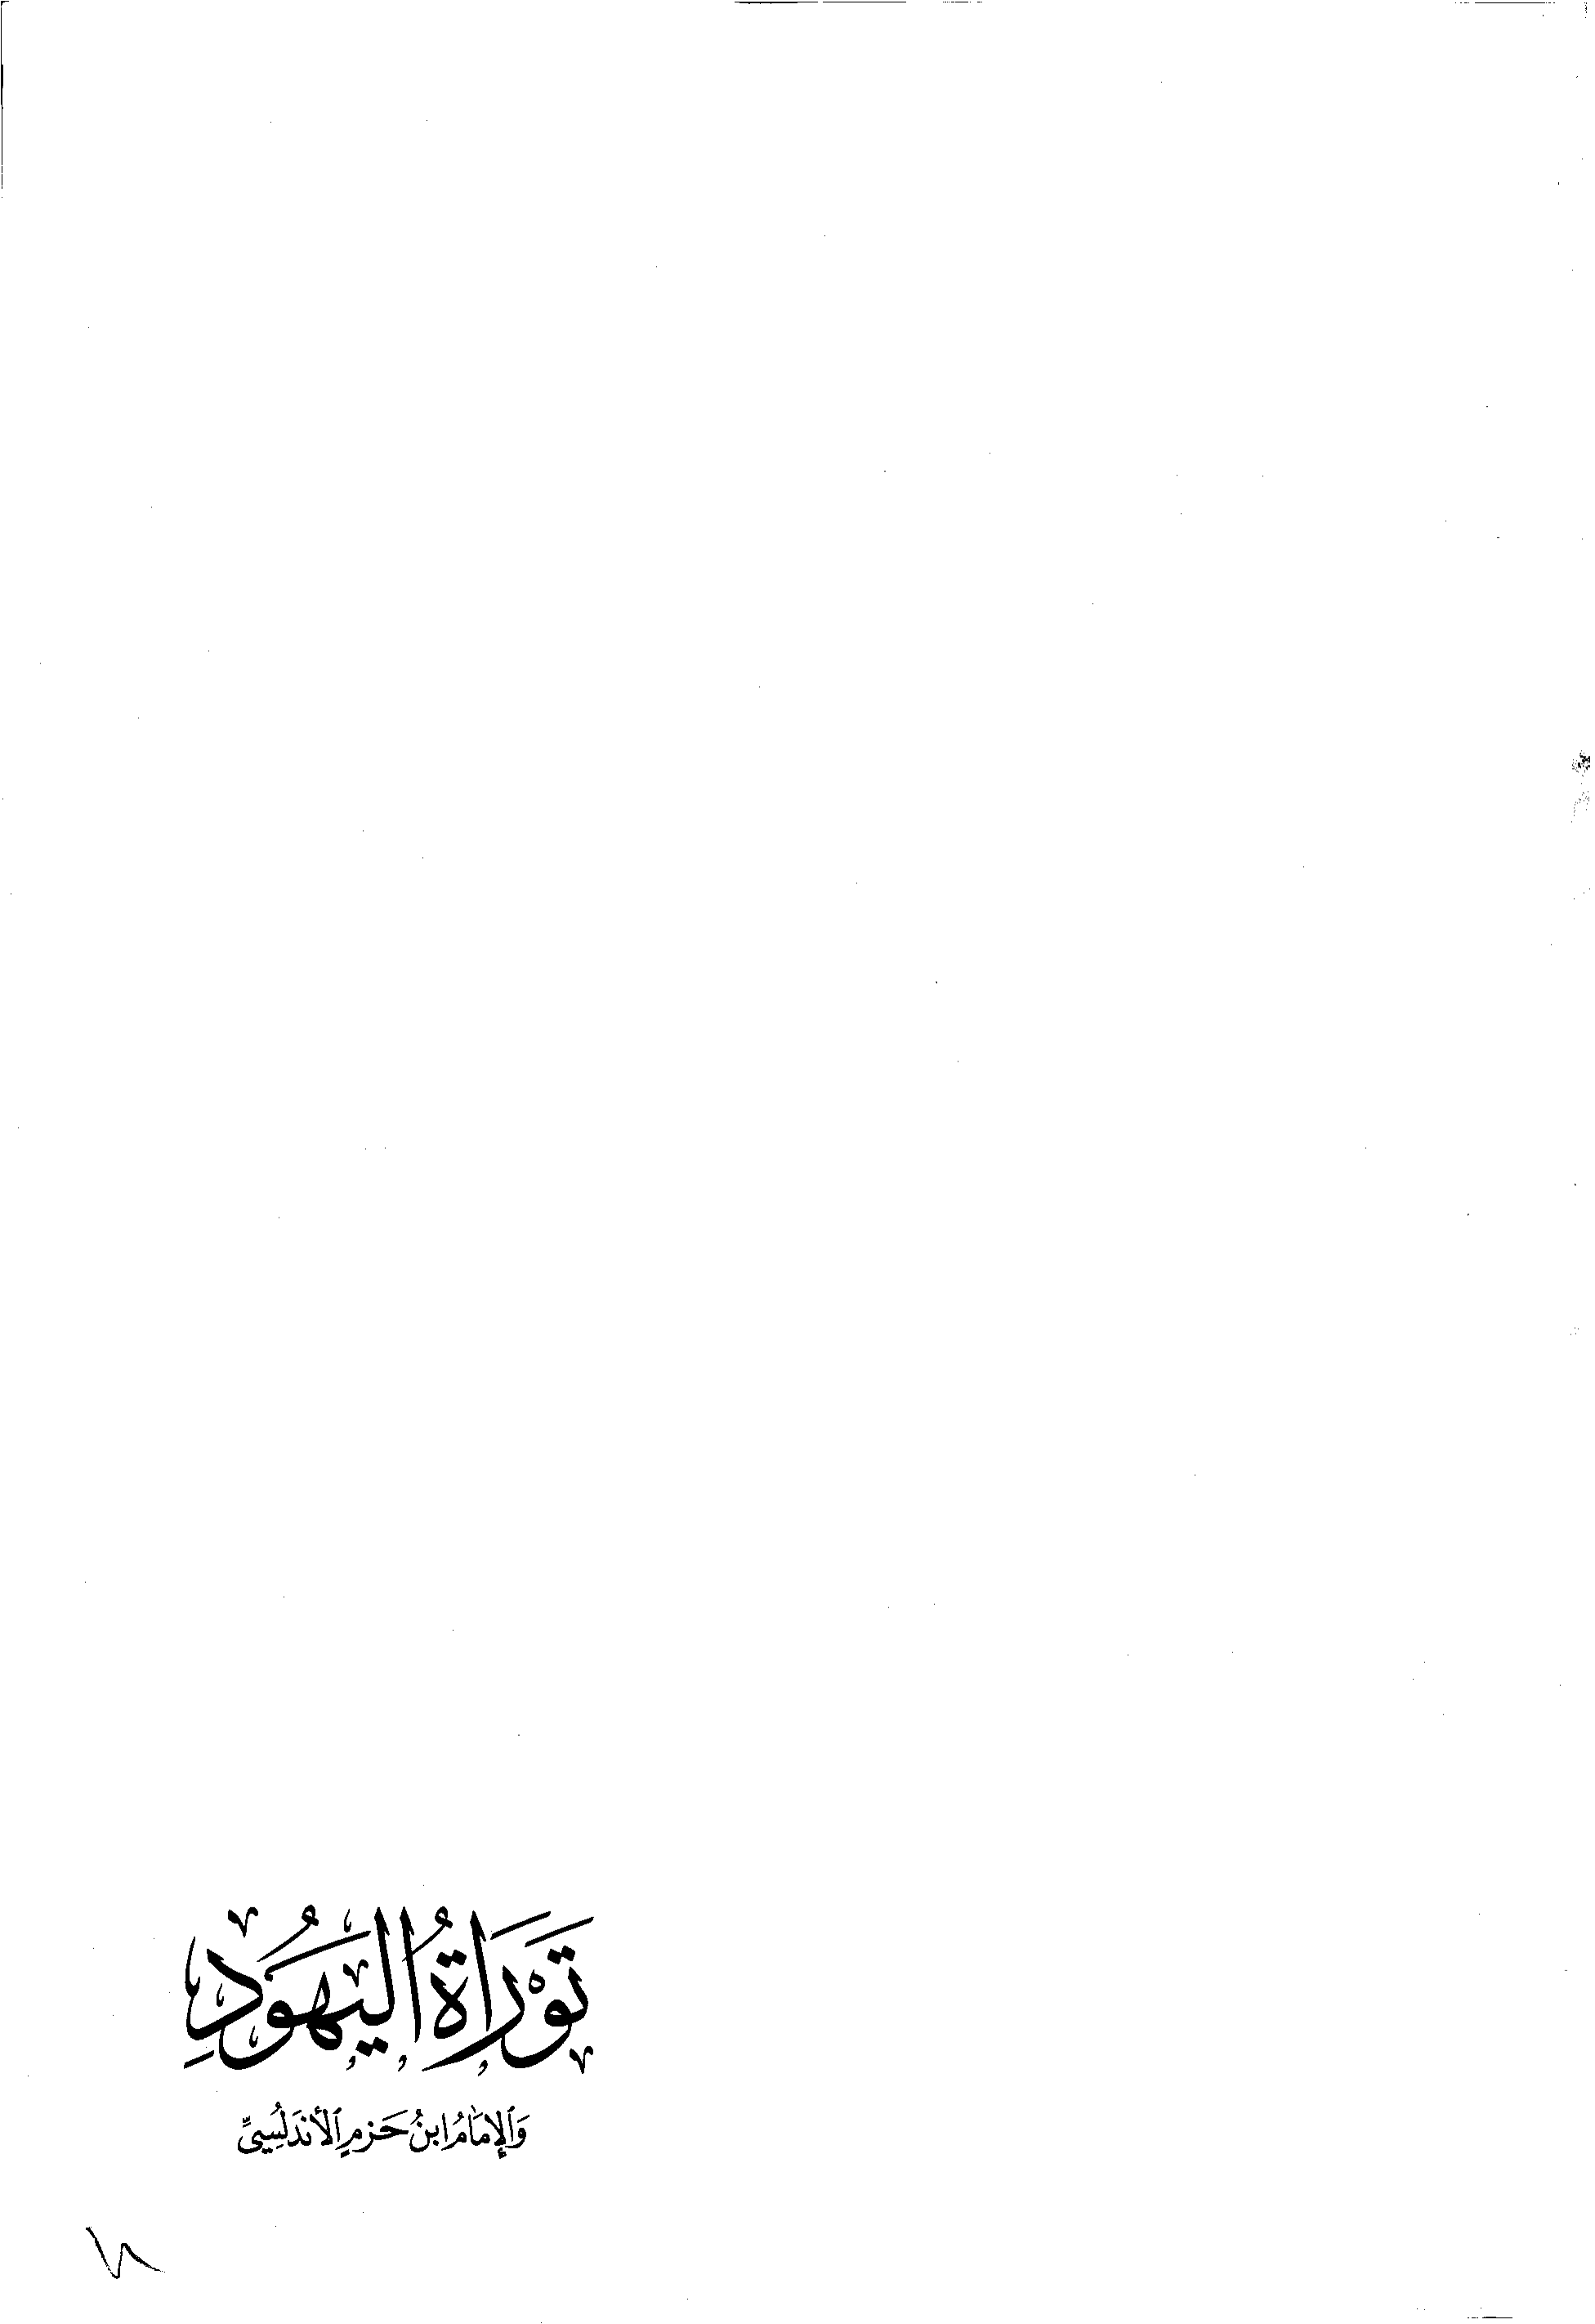 تَوْرَاةُ الْيَهُودِ
وَالإِمَامُ ابنُ حَزمٍ الأَندَلُسِيِّ